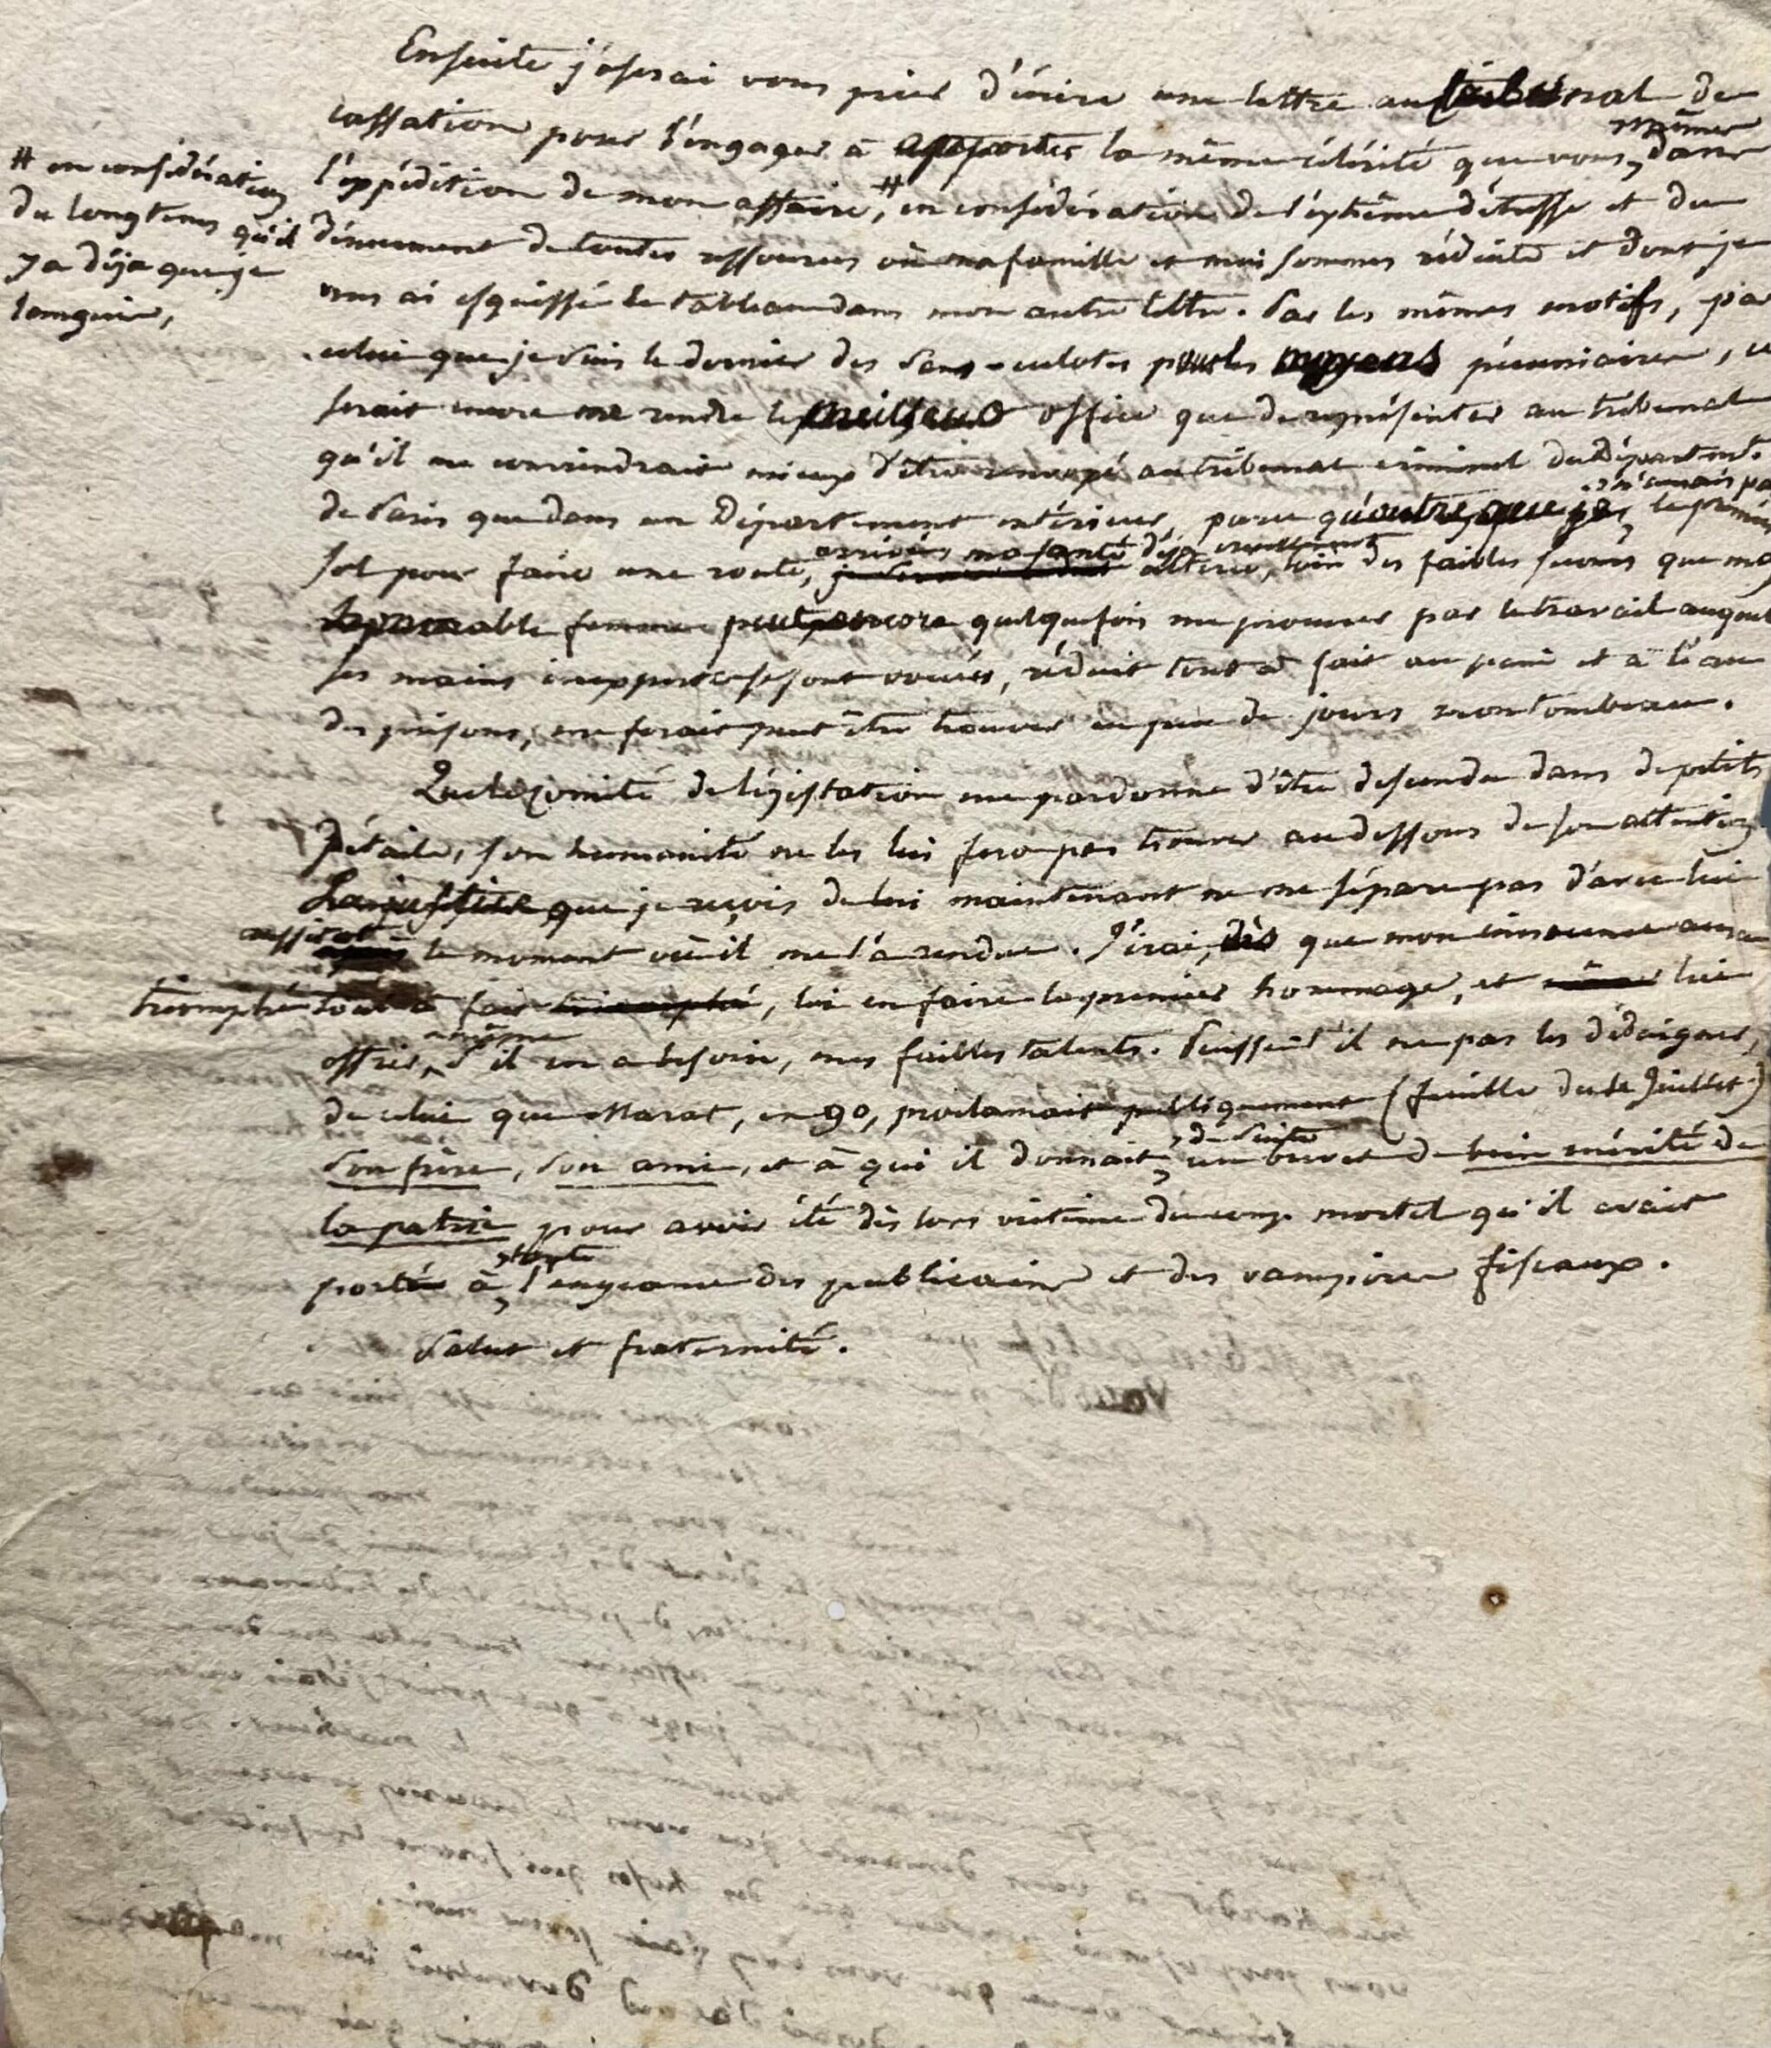 Ensuite j'oserai vous prier d'écrire une lettre au tribunal de
cassation pour l'engager à apporter la même célérité que vous mêmes dans
l'expédition de mon affaire, # en considération de l'extrême détresse et du
# en considération
du longtems qu'il
y a déja que je
languis,
dénuement de toutes ressources où ma famille et moi sommes réduits et dont je
vous ai esquissé le tableau dans mon autre lettre. Par les mêmes motifs, par
celui que je suis le dernier des Sans-culotes pour les moyens pécuniaires, ce
serait encore me rendre le meilleur office que de représenter au tribunal
qu'il me conviendrait mieux d'être renvoyé au tribunal criminel du Départemt.
de Paris que dans un Département intérieur, parce qu'outre que je n'aurais pas le premier
sol pour faire une route, arrivés ma santé déja altérée, loin des faibles secours que ma
femme peut encore quelquefois me procurer par le travail auquel
ses mains se sont vouées, réduit tout à fait au pain et à l'eau
des prisons, me ferait peut être trouver en peu de jours mon tombeau.
Que le Comité de législation me pardonne d'être descendu dans de petits
détails, son humanité ne les lui fera pas trouver au dessous de son attention
La justice que je reçois de lui maintenant ne me sépare pas d'avec lui
aussitot le moment où il me l'a rendue. J'irai, dès que mon innocence aura
triomphé tout à fait triomphé, lui en faire le premier hommage, et même lui
offrir, même s'il en a besoin, mes faibles talents. Puisse-t'il ne pas les dédaigner,
de celui que Marat, en 90, proclamait publiquement (feuille du 4 Juillet)
Son frère, Son ami, et à qui il donnait, de suite un brevet de bien mérité de
la patrie pour avoir été dès lors victime du coup mortel qu'il avait
porté à toute l'engeance des publicains et des vampires fiscaux.
Salut et fraternité.